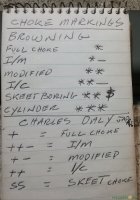 CHOKE MARKINGS
BROWNING
FULL CHOKE *
I/M * -
MODIFIED **
I/C ** -
SKEET BORING ** $
CYLINDER ***
CHARLES DALY
+ = FULL CHOKE
++- = I/M
+- = MODIFIED
++ = I/C
SS = SKEET CHOKE